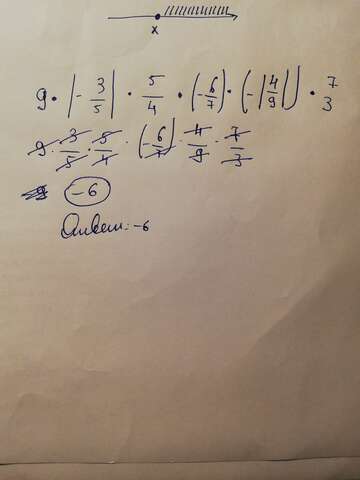 x
9 · |- 3/5| · 5/4 · (-6/7) · (-|4/9|) · 7/3
9 · 3/5 · 5/4 · (-6/7) · 4/9 · 7/3
-6
Ответ: -6